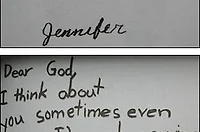 Jennifer
Dear God,
I think about
you sometimes even